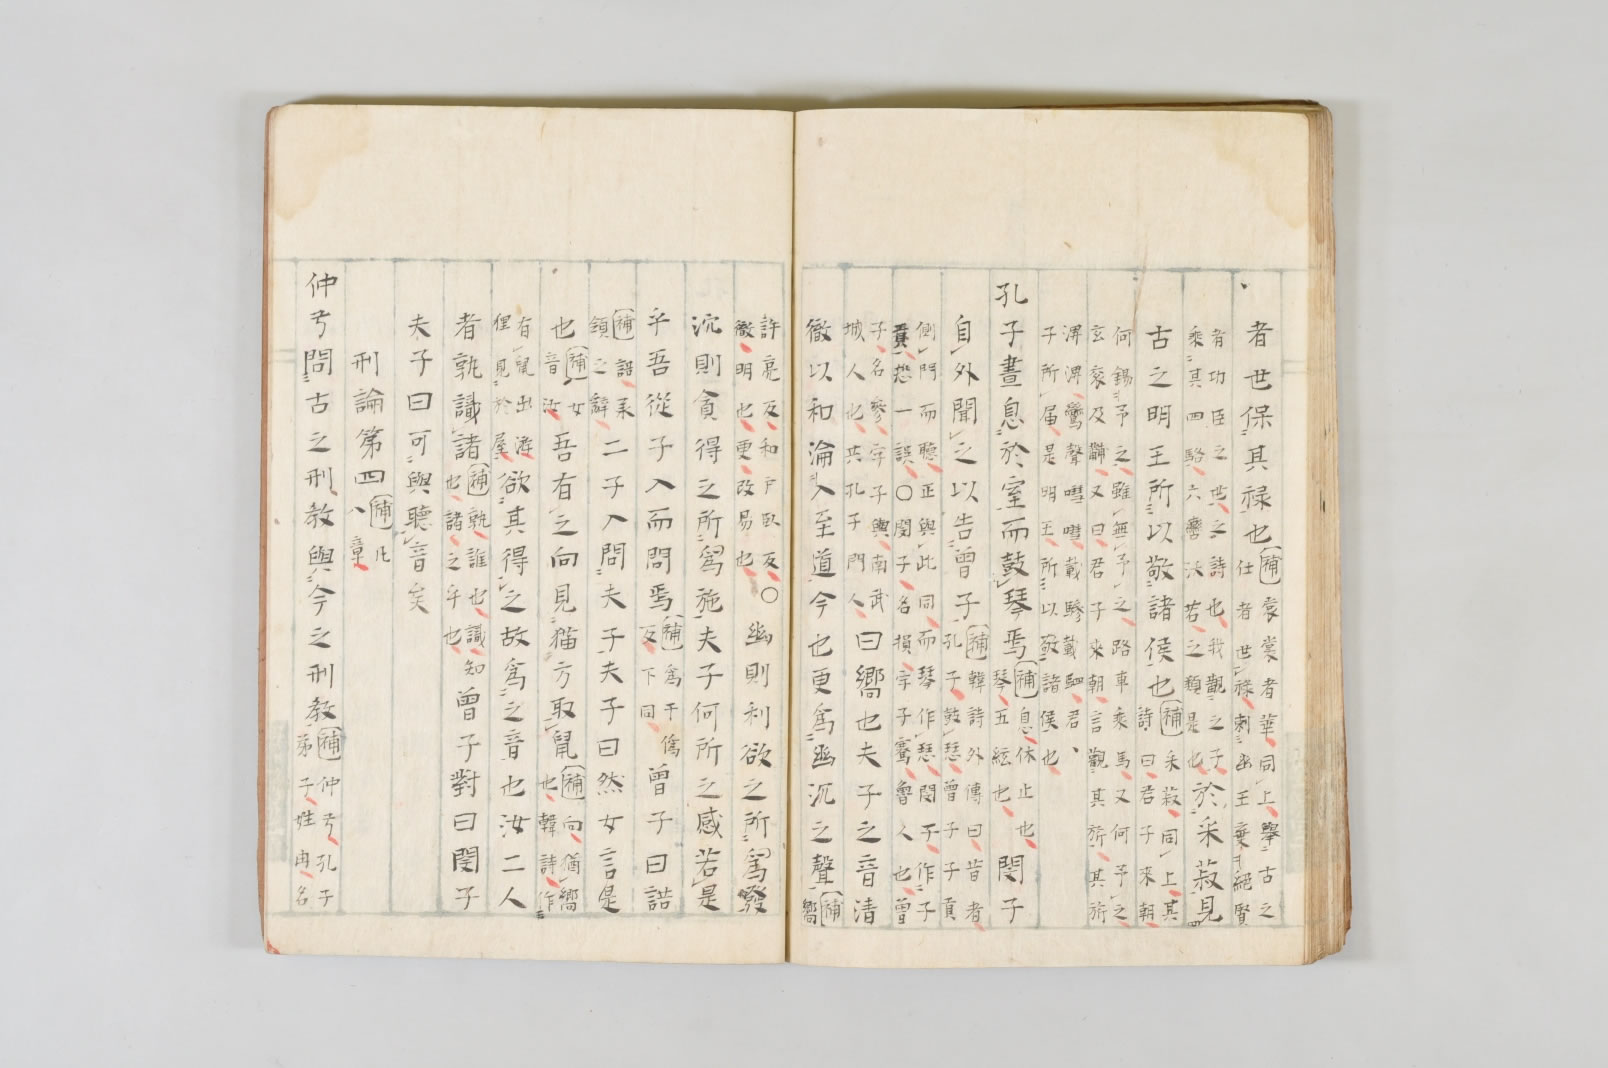 者世保其禄也補裳裳者華同上舉古之
仕者世禄刺幽王棄絕賢
者功臣之世之詩也我觀之子
乘其四駱六轡沃若之類是也於采菽見
古之明王所以敬諸侯也補采菽同上其
詩曰君子來朝
何錫予之雖無予之路車乘馬又何予之
玄袞及黼又曰君子來朝言觀其旂其旂
淠淠鸞聲嘒嘒載驂載駟君
子所届是明王所以敬諸侯也
孔子晝息於室而鼓琴焉補息休止也
琴五絃也閔子
自外聞之以告曾子補韓詩外傳曰昔者
孔子鼓瑟曾子子貢
側門而聽正與此同而琴作瑟閔子作子
貢恐一誤〇閔子名損字子騫魯人也曾
子名參字子輿南武
城人也共孔子門人曰嚮也夫子之音清
徹以和淪入至道今也更為幽沉之聲補
嚮
許亮反和戶臥反
徹明也更改易也〇幽則利欲之所為發
沉則貪得之所為施夫子何所之感若是
乎吾從子入而問焉補為于偽
反下同曾子曰諾
補諾柔
領之辭二子入問夫子夫子曰然女言是
也補女
音汝吾有之向見猫方取鼠補向猶嚮
也韓詩作
有鼠出游
狸見於屋欲其得之故為之音也汝二人
者孰識諸補孰誰也識知
也諸之乎也曾子對曰閔子
夫子曰可與聽音矣
刑論第四補凡
八章
仲弓問古之刑教與今之刑教補仲弓孔子
弟子姓冉名